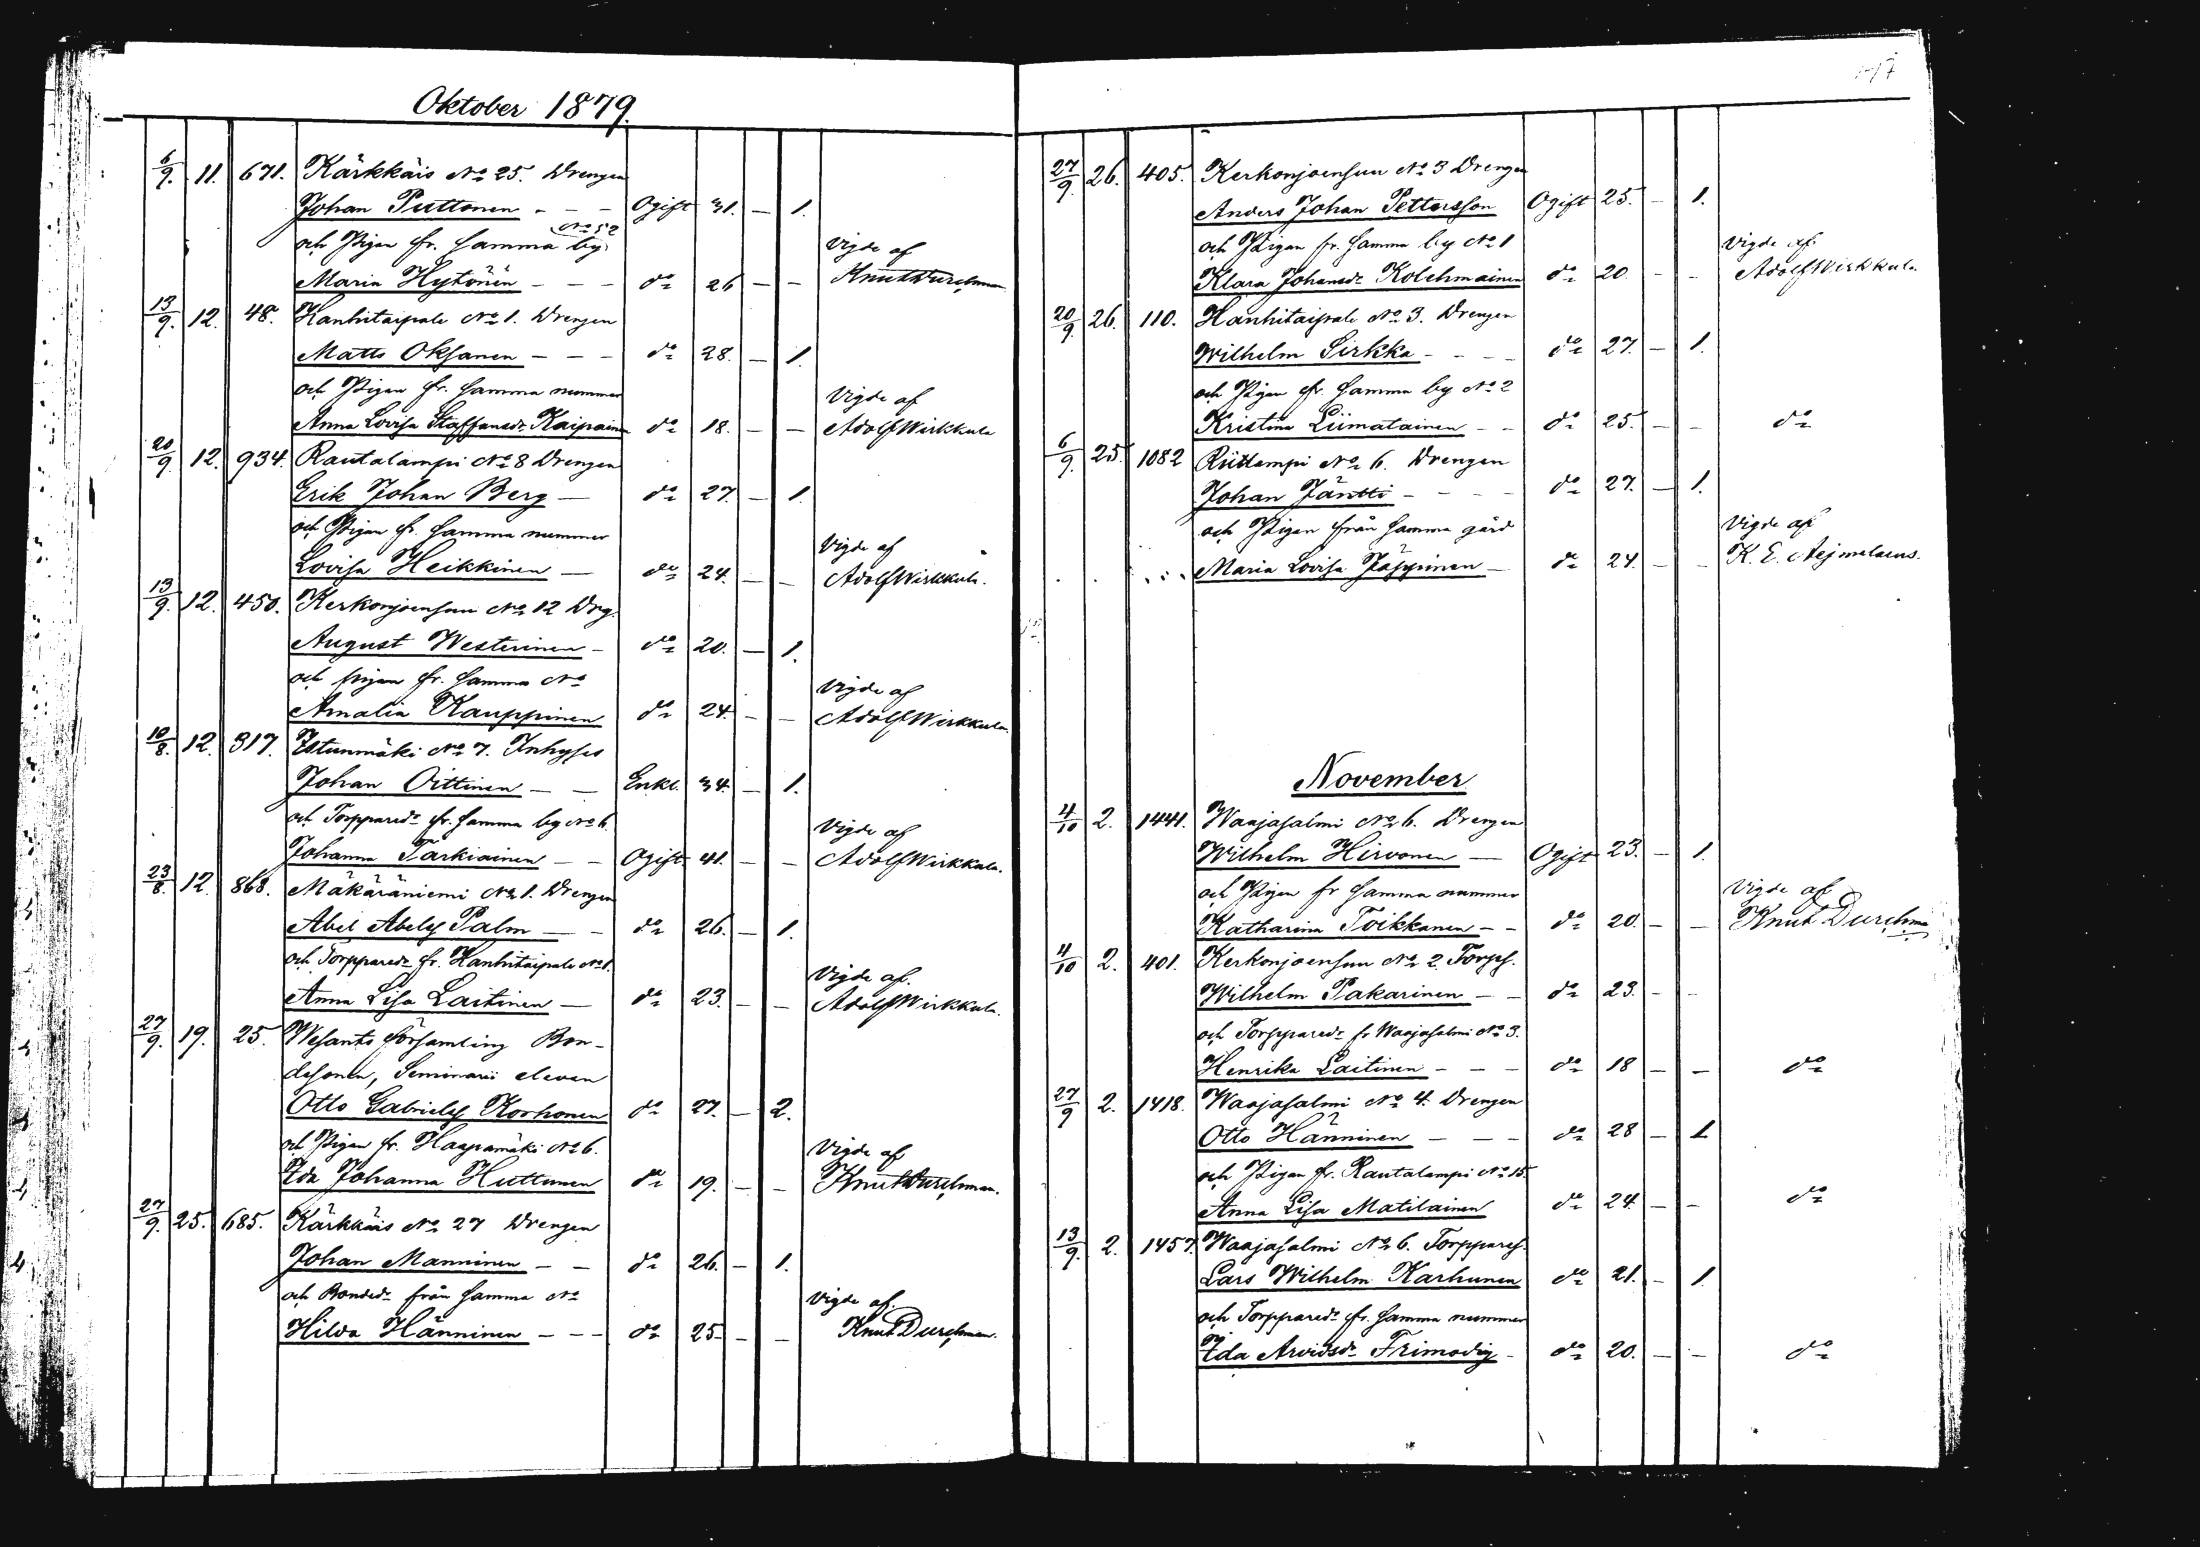 Oktober 1879.
6/9. 11. 671. Kärkkäis No 25. Drengen
Johan Puttonen - - - Ogift 31. — 1.
No 52
och Pigan fr. samma by. Vigde af
Maria Hytönen - - - do 26 — — Knut Durchman
13/9. 12. 48. Hanhitaipale No 1. Drengen
Matts Oksanen - - - do 28. — 1.
och Pigan fr. samma nummer Vigde af
Anna Lovisa Staffansdr Kaipainen do 18. — — Adolf Wirkkula
20/9. 12. 934. Rautalampi No 8 Drengen
Erik Johan Berg — do 27. — 1.
och Pigan fr. samma nummer Vigde af
Lovisa Heikkinen — do 24. — — Adolf Wirkkula.
13/9. 12. 450. Kerkonjoensuu No 12 Drg.
August Westerinen - do 20. — 1.
och pigan fr. samma No Vigde af
Amalia Kauppinen do 24. — — Adolf Wirkkula.
10/8. 12. 317. Istunmäki No 7. Inhyses
Johan Oittinen — — Enkl. 34. — 1.
och Torpparedr fr. samma by No 6. Vigde af
Johanna Tarkiainen — — Ogift 41. — — Adolf Wirkkula.
23/8. 12. 868. Mäkäräniemi No 1. Drengen
Abel Abels Palm — — do 26. — 1.
och Torpparedr fr. Hanhitaipale No 1. Vigde af.
Anna Lisa Laitinen — do 23. — — Adolf Wirkkula.
27/9. 19. 25. Wesanto församling Bon-
desonen, Seminarii eleven
Otto Gabriels Korhonen do 27. — 2.
och Pigan fr. Haapamäki No 6. Vigde af
Ida Johanna Huttunen do 19. — — Knut Durchman.
27/9. 25. 685. Kärkkäis No 27 Drengen
Johan Manninen — — do 26. — 1.
och Bondedr från samma No Vigde af.
Hilda Hänninen — — — do 25 — — Knut Durchman.
27/9. 26. 405. Kerkonjoensuu No 3 Drengen
Anders Johan Pettersson Ogift 25. — 1.
och Pigan fr. samma by No 1 Vigde af
Klara Johansdr Kolehmainen do 20. — — Adolf Wirkkula.
20/9. 26. 110. Hanhitaipale No 3. Drengen
Wilhelm Sirkka - - - - do 27. — 1.
och Pigan fr. samma by No 2
Kristina Liimatainen - - do 25. — — do
6/9. 25. 1082 Riitlampi No 6. Drengen
Johan Jäntti - - - - do 27. — 1.
och Pigan från samma gård Vigde af
Maria Lovisa Jäppinen — do 24. — — K. E. Aejmelaeus.
November
4/10 2. 1441. Waajasalmi No 6. Drengen
Wilhelm Hirvonen — Ogift 23. — 1.
och Pigan fr samma nummer Vigde af
Katharina Toikkanen - - do 20. — — Knut Durchman
4/10 2. 401. Kerkonjoensuu No 2. Torps.
Wilhelm Pakarinen — — do 23. - -
och Torpparedr fr Waajasalmi No 3.
Henrika Laitinen - - - do 18 — — do
27/9 2. 1418. Waajasalmi No 4. Drengen
Otto Hänninen — — — do 28 — 1
och Pigan fr. Rautalampi No 15.
Anna Lisa Matilainen do 24. — — do
13/9. 2. 1457. Waajasalmi No 6. Torppares.
Lars Wilhelm Karhunen do 21. — 1.
och Torpparedr fr. samma nummer
Ida Arvidsdr Frimodig - do 20. — — do